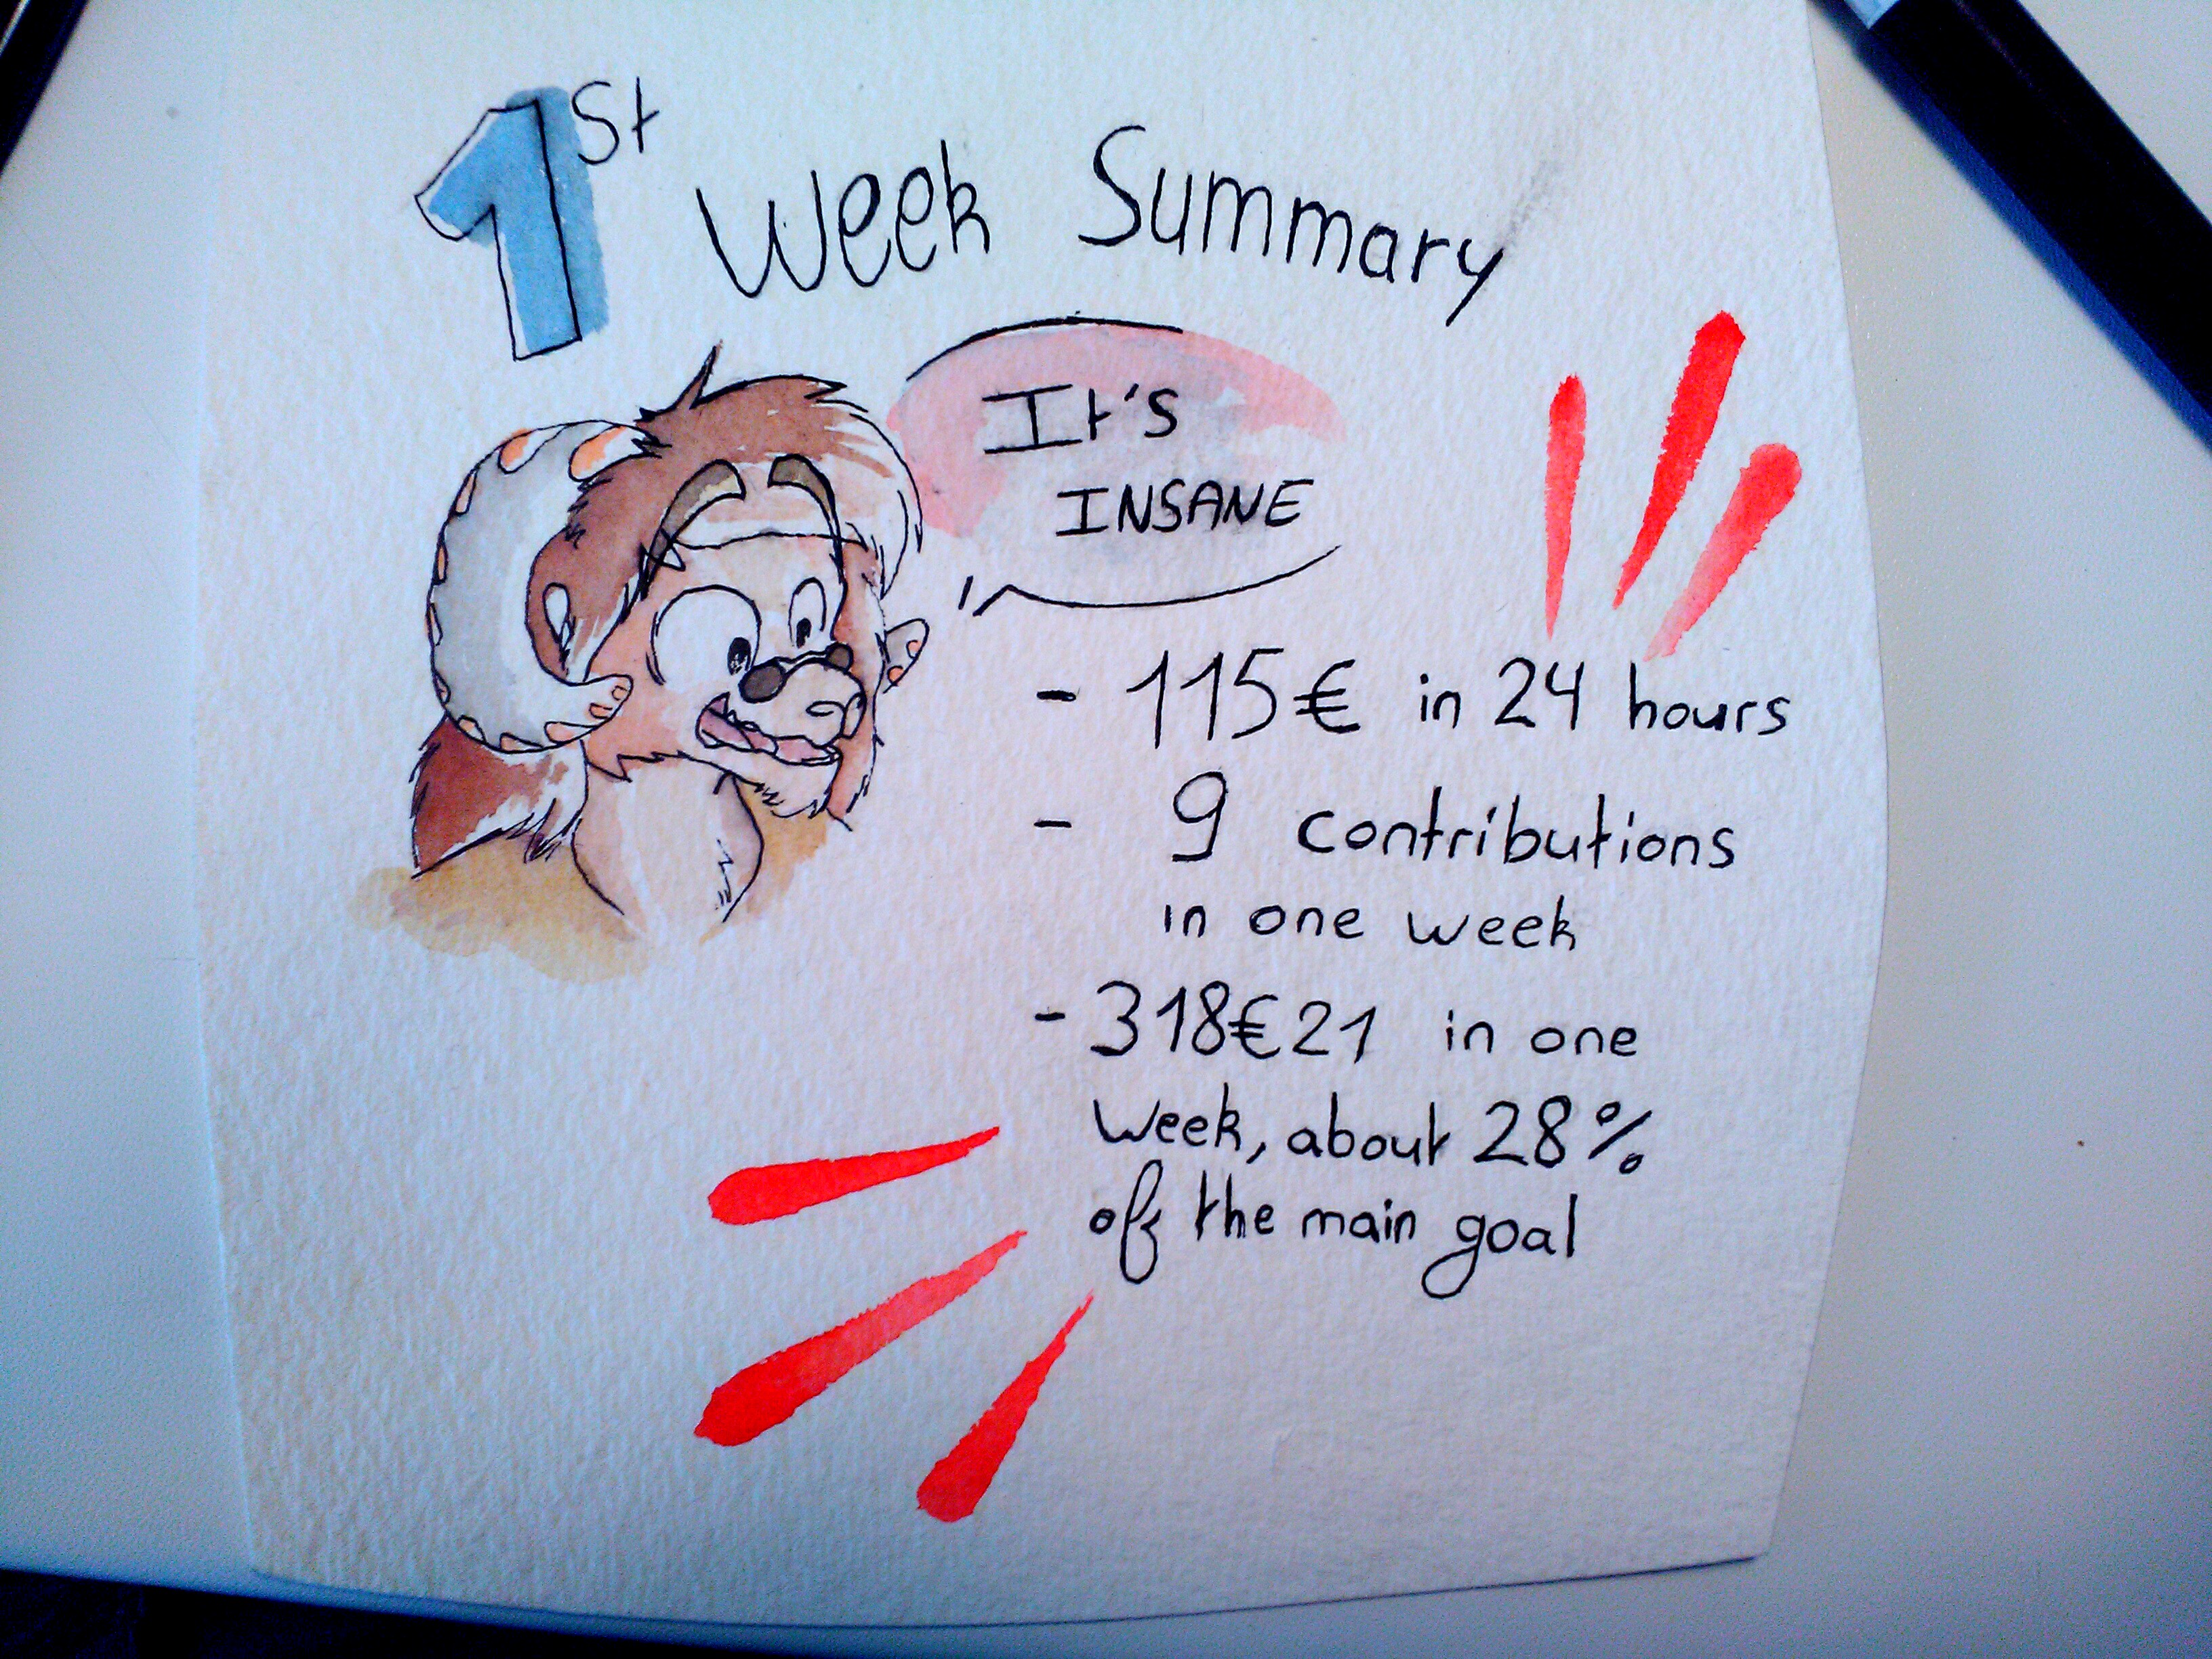 1st Week Summary
It's
INSANE
- 115€ in 24 hours
- 9 contributions
in one week
- 318€21 in one
week, about 28%
of the main goal